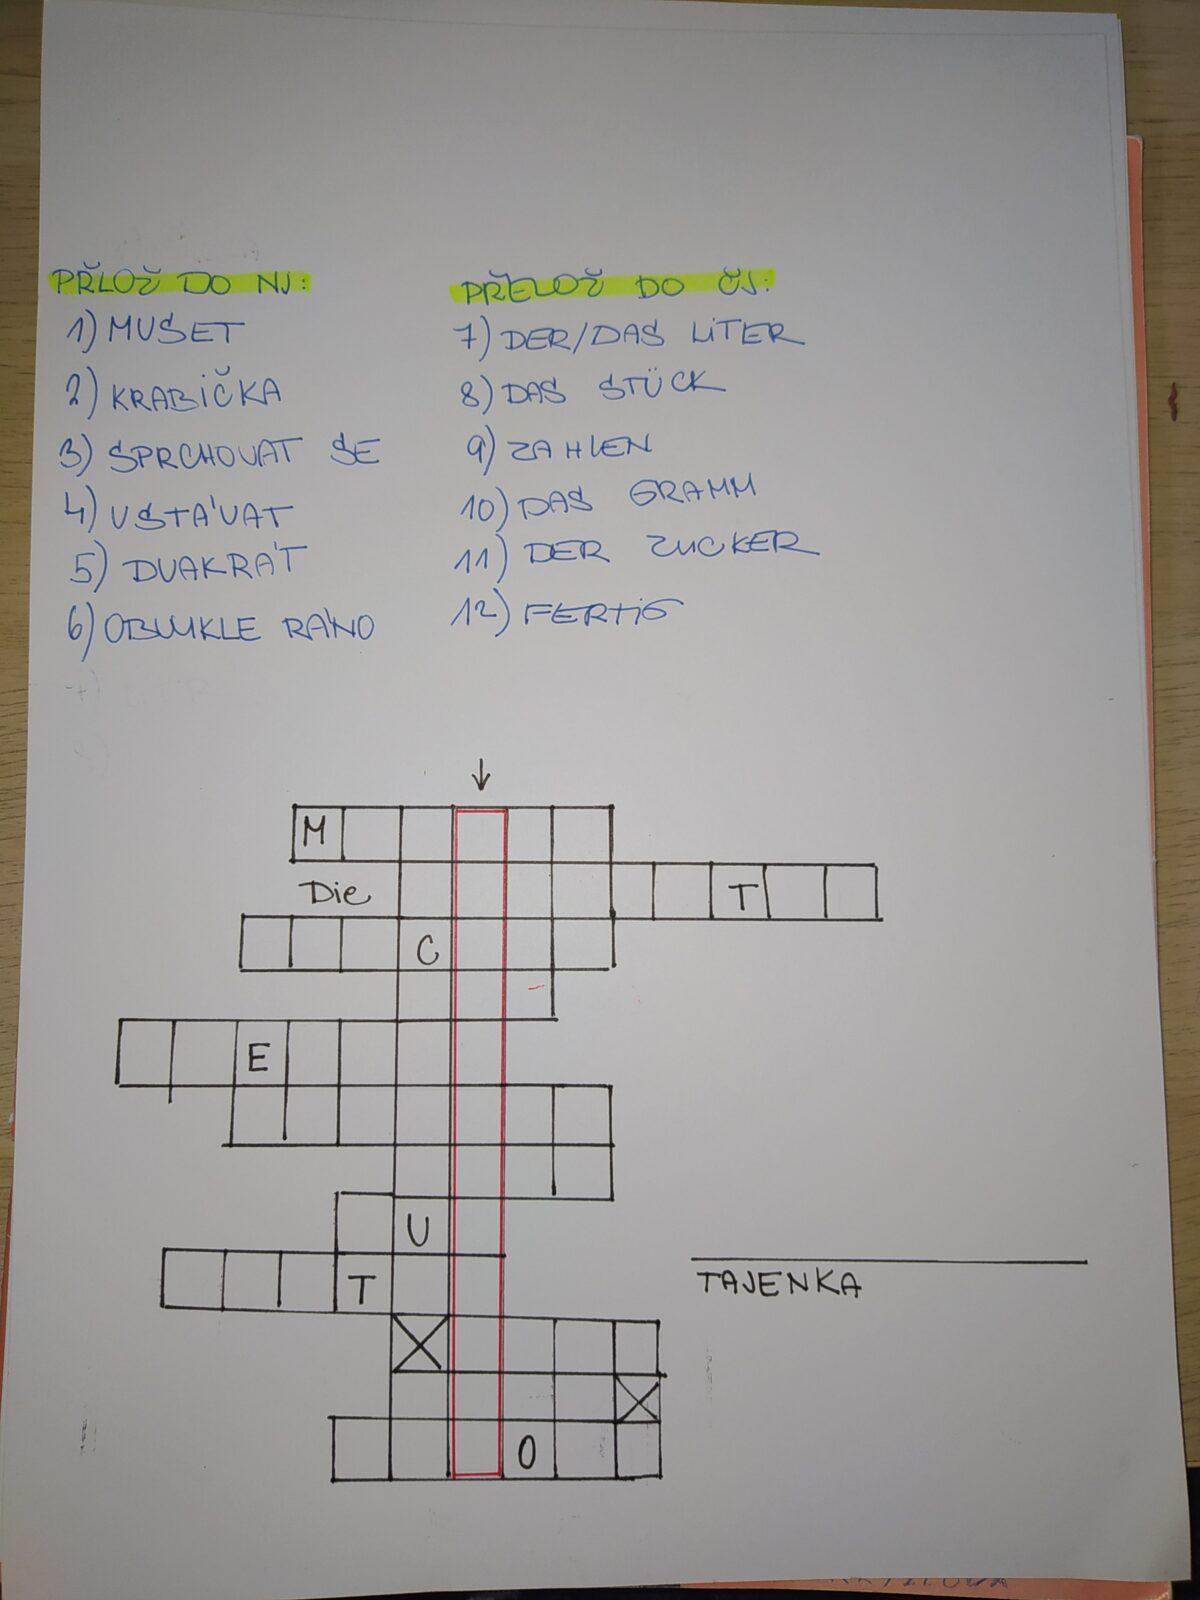 PŘLOŽ DO NJ:
1) MUSET
2) KRABIČKA
3) SPRCHOVAT SE
4) VSTÁVAT
5) DVAKRÁT
6) OBVYKLE RÁNO
PŘELOŽ DO ČJ:
7) DER/DAS LITER
8) DAS STÜCK
9) ZAHLEN
10) DAS GRAMM
11) DER ZUCKER
12) FERTIG
M
Die T
C
E
U
T
TAJENKA
O